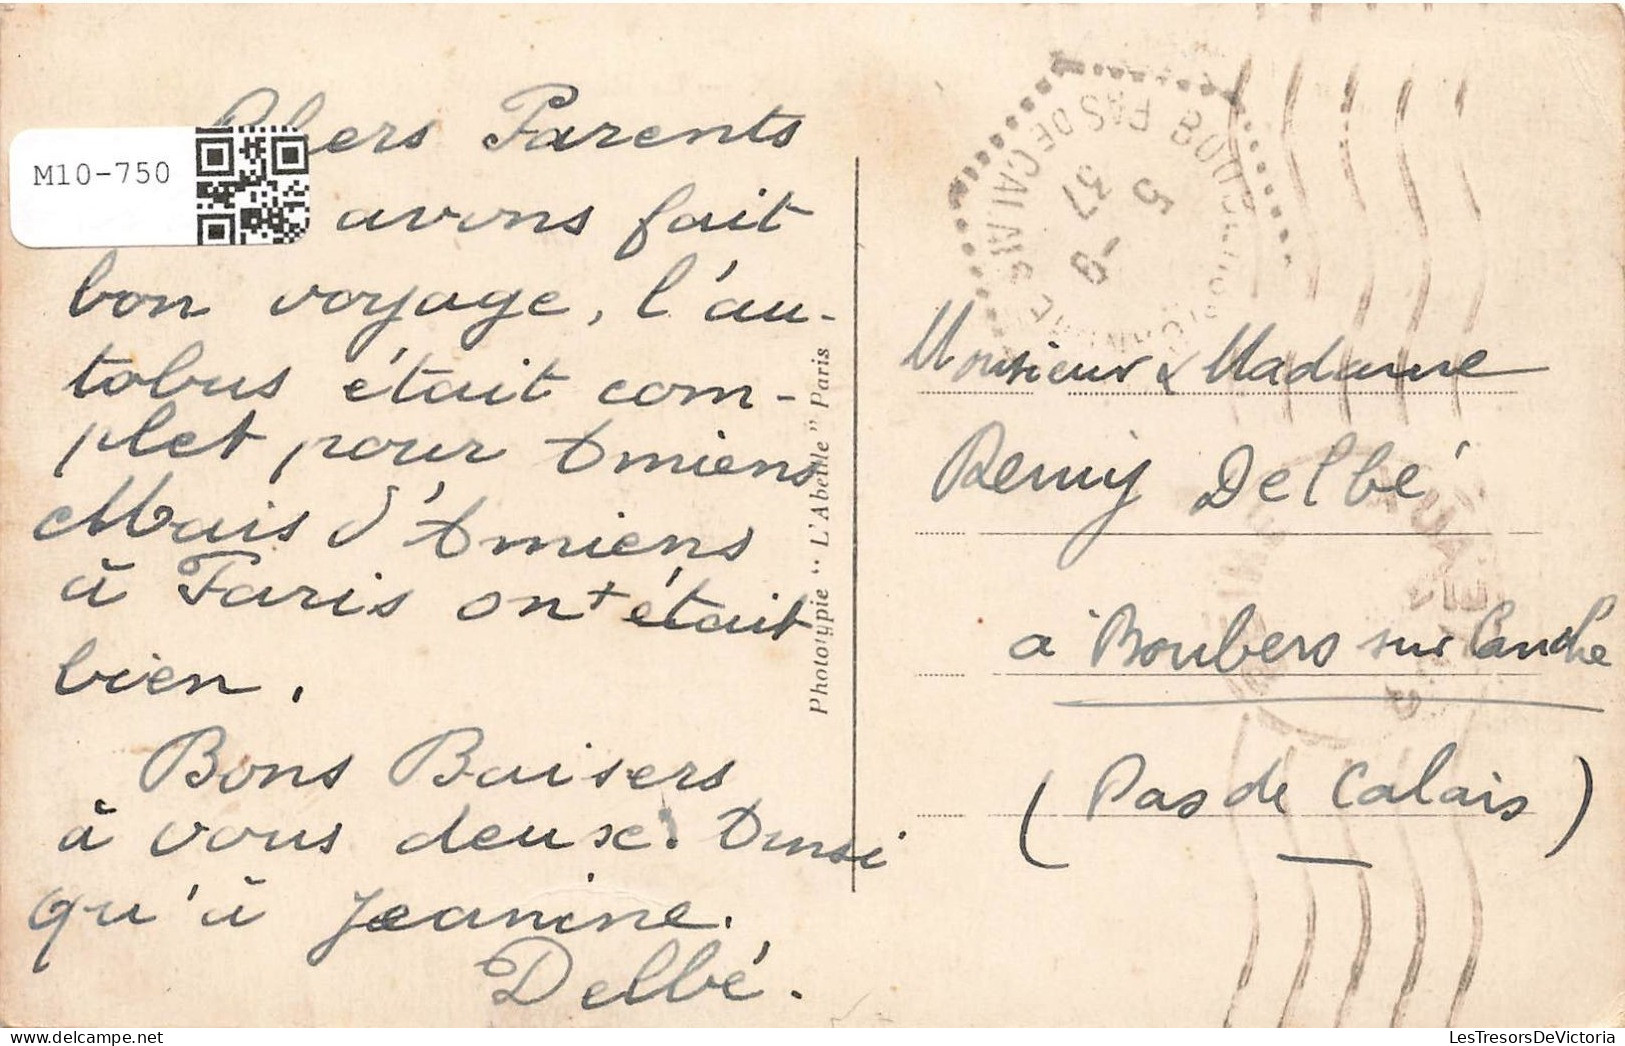 M10-750
Chers Parents
avons fait
bon voyage, l'au-
tobus était com-
plet pour Amiens
Mais d'Amiens
à Paris on était
bien.
Bons Baisers
à vous deux. Ainsi
qu'à Jeanine.
Delbé.
Phototypie "L'Abeille" Paris
PAS DE CALAIS
5 - 9
37
Monsieur & Madame
Remy Delbé
à Boubers sur Canche
(Pas de Calais)
LesTresorsDeVictoria